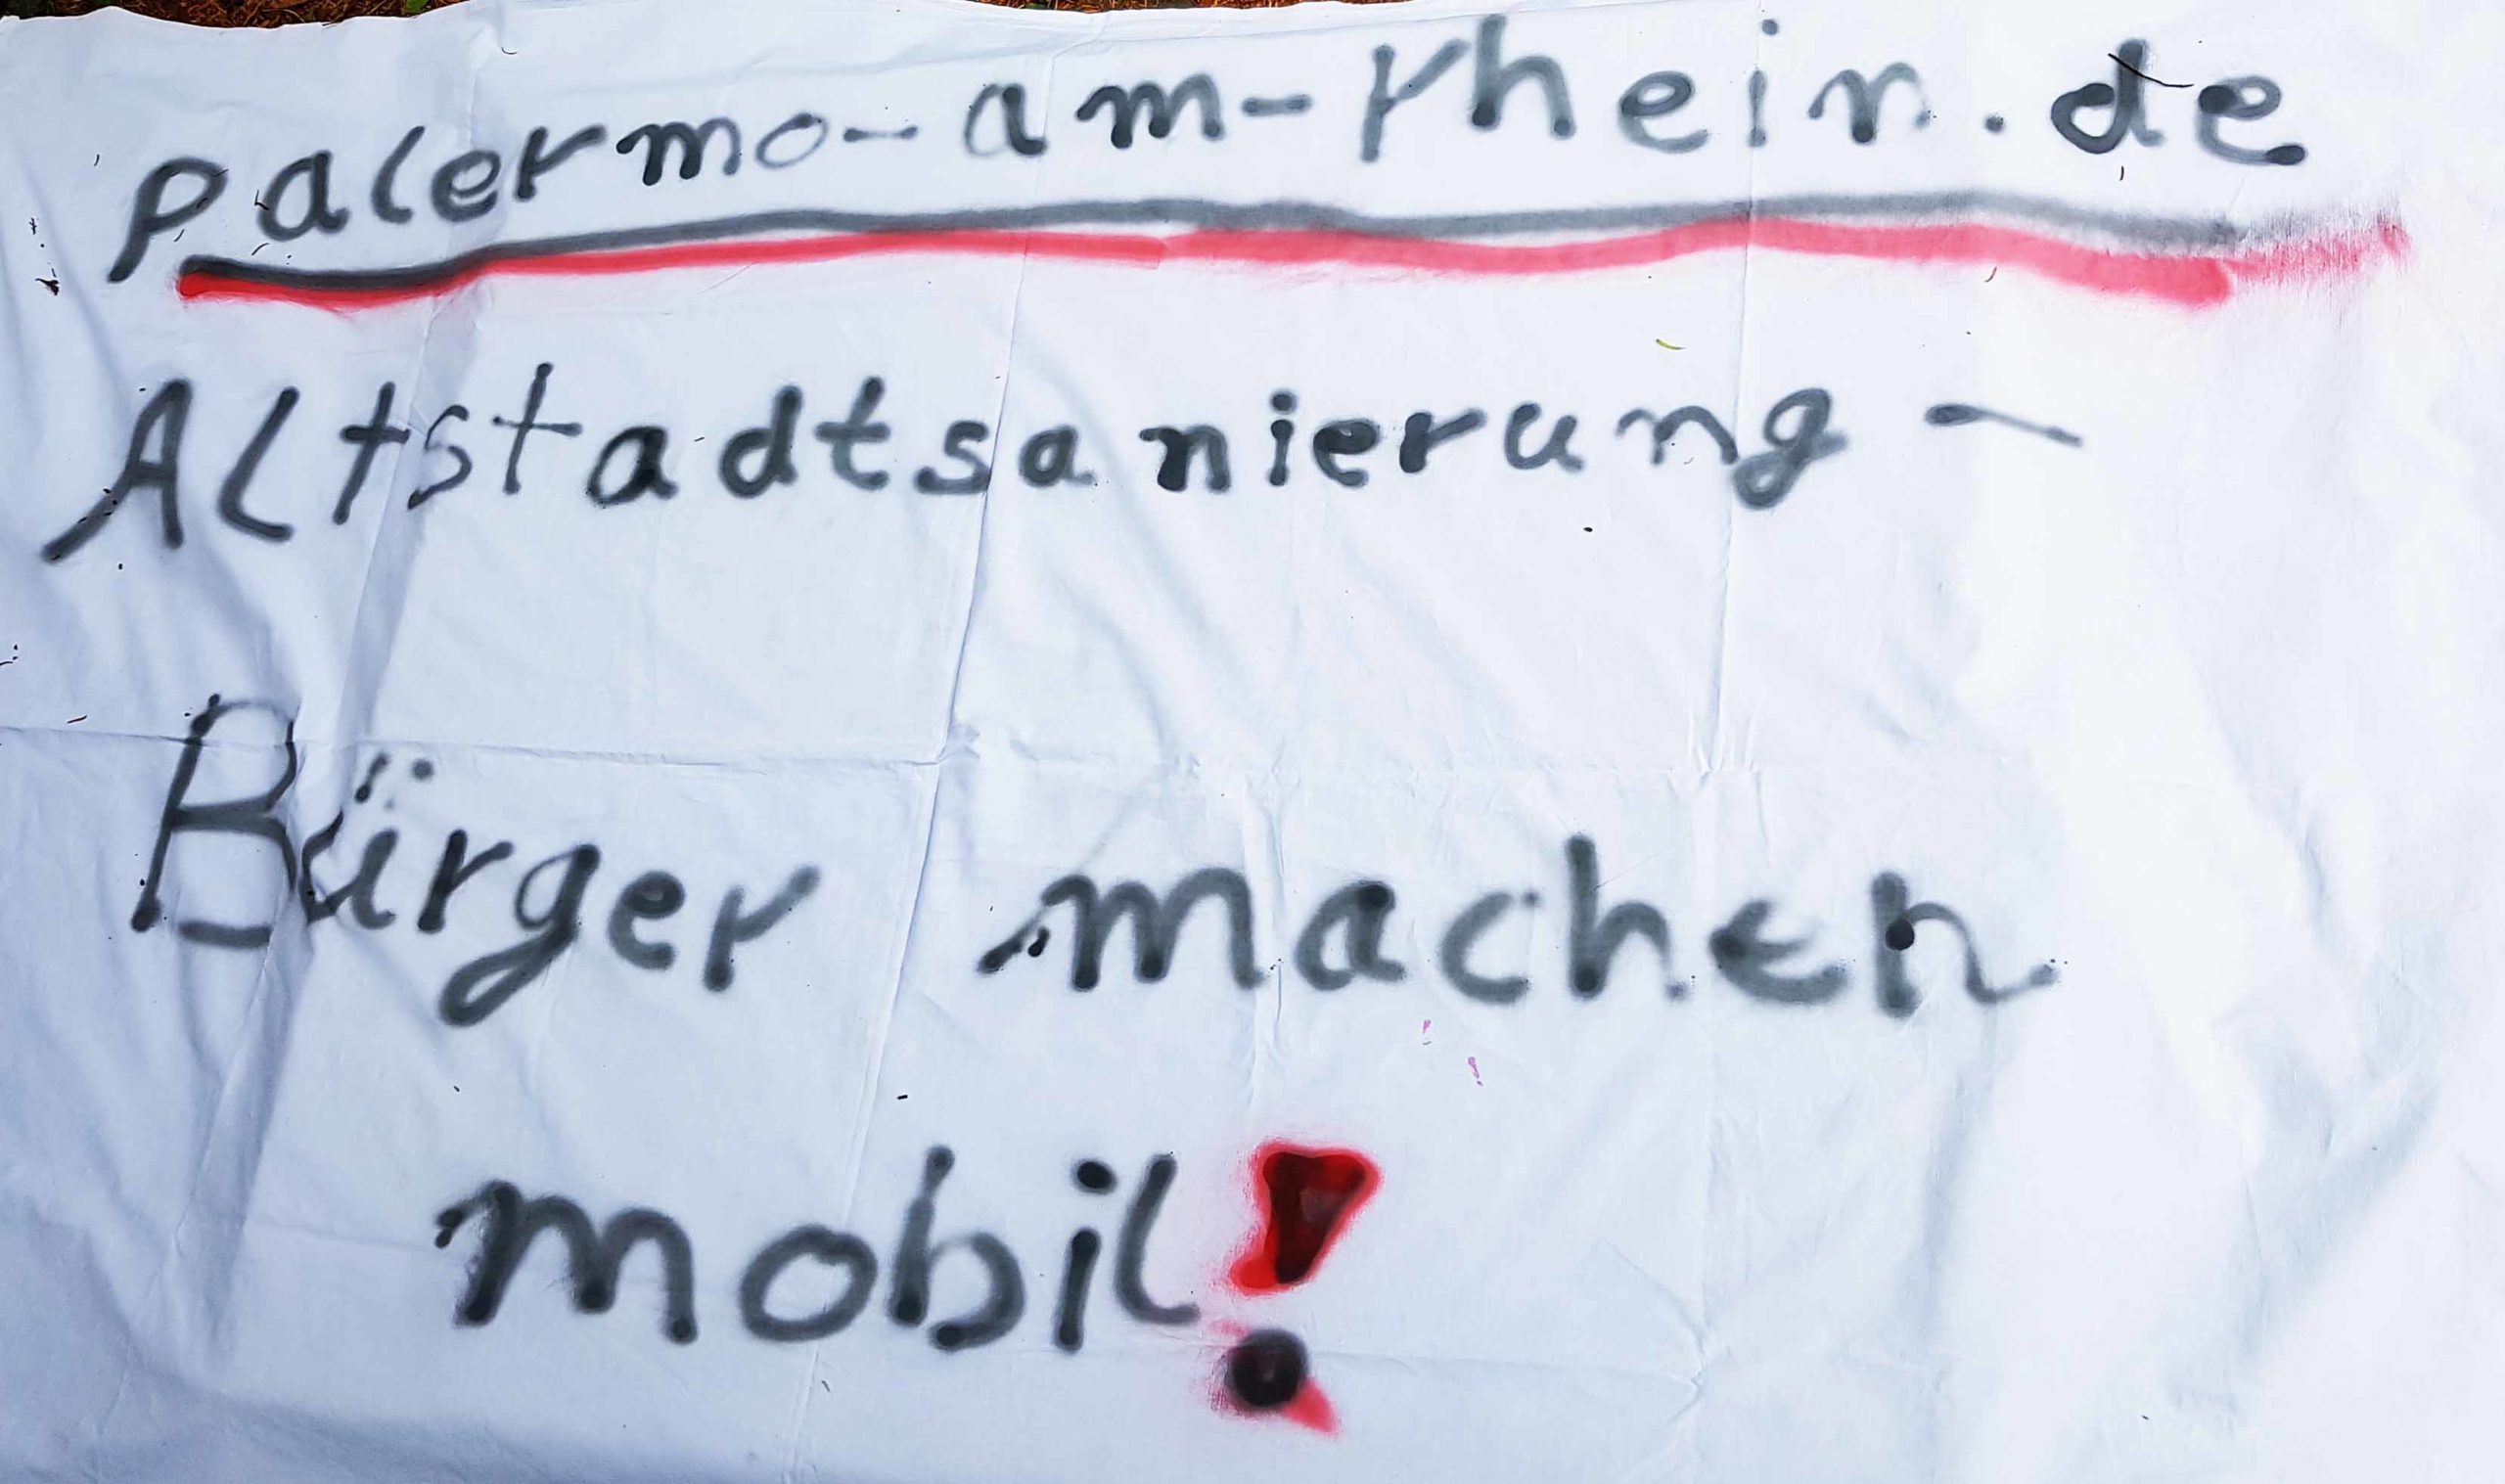 palermo-am-rhein.de
Altstadtsanierung -
Bürger machen
mobil!